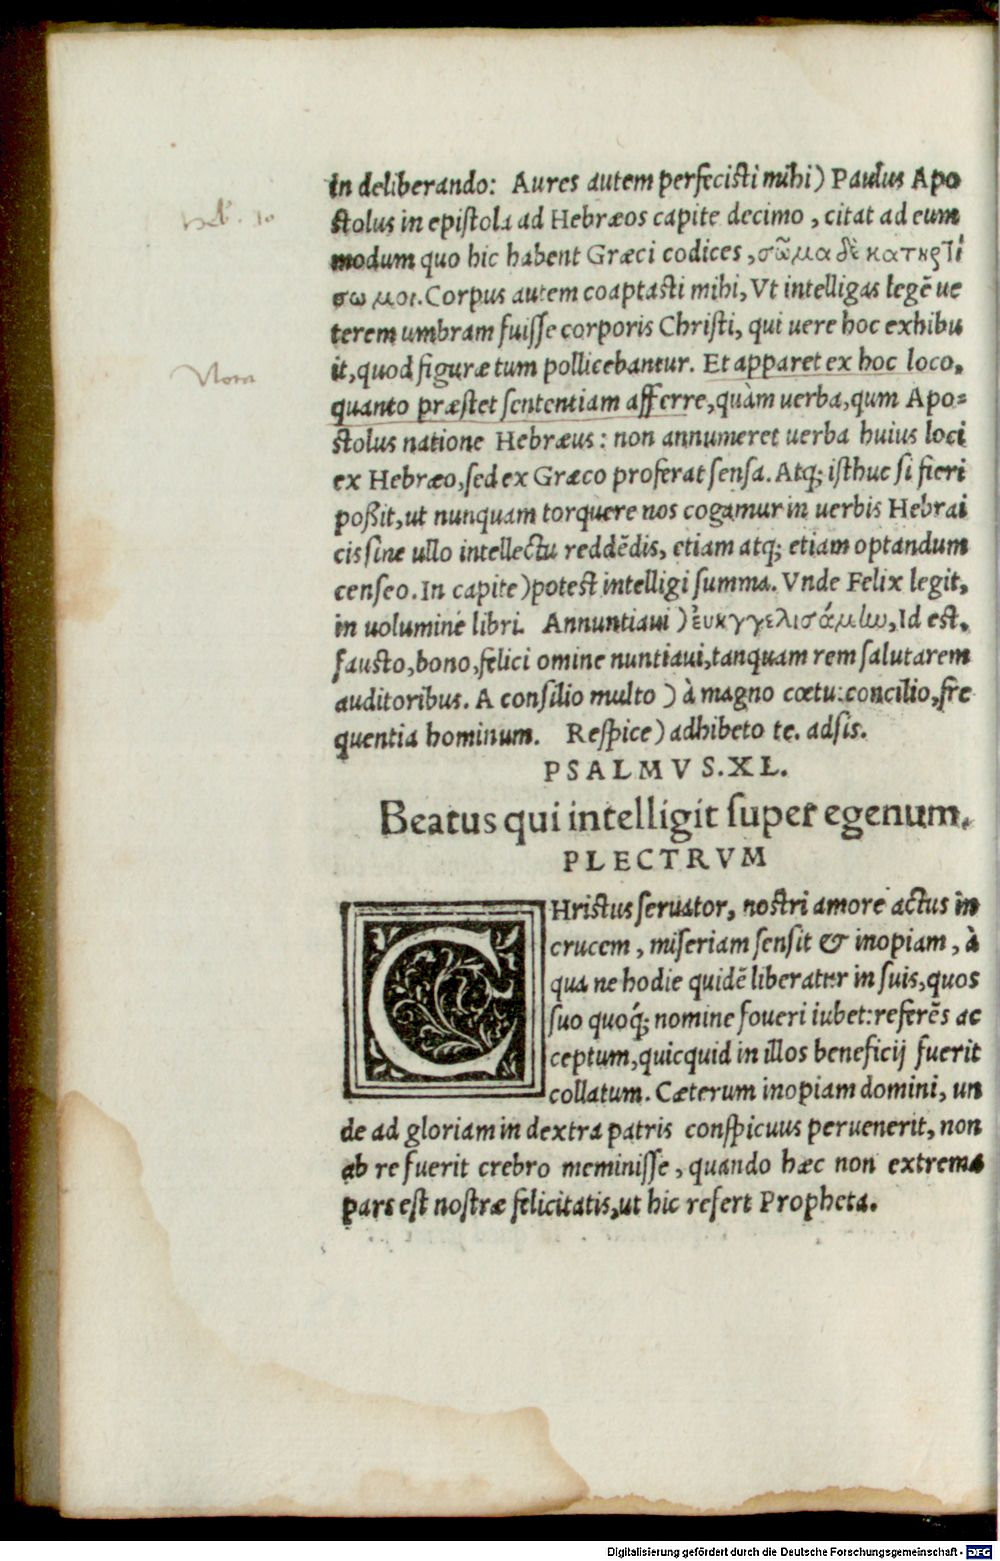 in deliberando: Aures autem perfecisti mihi) Paulus Apo
stolus in epistola ad Hebræos capite decimo, citat ad eum
modum quo hic habent Græci codices, σῶμα δὲ κατηρτί
σω μοι. Corpus autem coaptasti mihi, Vt intelligas legẽ ue
terem umbram fuisse corporis Christi, qui uere hoc exhibu
it, quod figuræ tum pollicebantur. Et apparet ex hoc loco,
quanto præstet sententiam afferre, quàm uerba, qum Apo=
stolus natione Hebræus: non annumeret uerba huius loci
ex Hebræo, sed ex Græco proferat sensa. Atq; isthuc si fieri
poßit, ut nunquam torquere nos cogamur in uerbis Hebrai
cis sine ullo intellectu reddẽdis, etiam atq; etiam optandum
censeo. In capite) potest intelligi summa. Vnde Felix legit,
in uolumine libri. Annuntiaui) ἐυηγγελισάμlω, Id est,
fausto, bono, felici omine nuntiaui, tanquam rem salutarem
auditoribus. A consilio multo) à magno cœtu: concilio, fre
quentia hominum. Respice) adhibeto te. adsis.
PSALMVS. XL.
Beatus qui intelligit super egenum.
PLECTRVM
CHristus seruator, nostri amore actus in
crucem, miseriam sensit & inopiam, à
qua ne hodie quidẽ liberatur in suis, quos
suo quoq́; nomine foueri iubet: referẽs ac
ceptum, quicquid in illos beneficij fuerit
collatum. Cæterum inopiam domini, un
de ad gloriam in dextra patris conspicuus peruenerit, non
ab re fuerit crebro meminisse, quando hæc non extrema
pars est nostræ felicitatis, ut hic refert Propheta.
Heb. 10
Nota
Digitalisierung gefördert durch die Deutsche Forschungsgemeinschaft - DFG